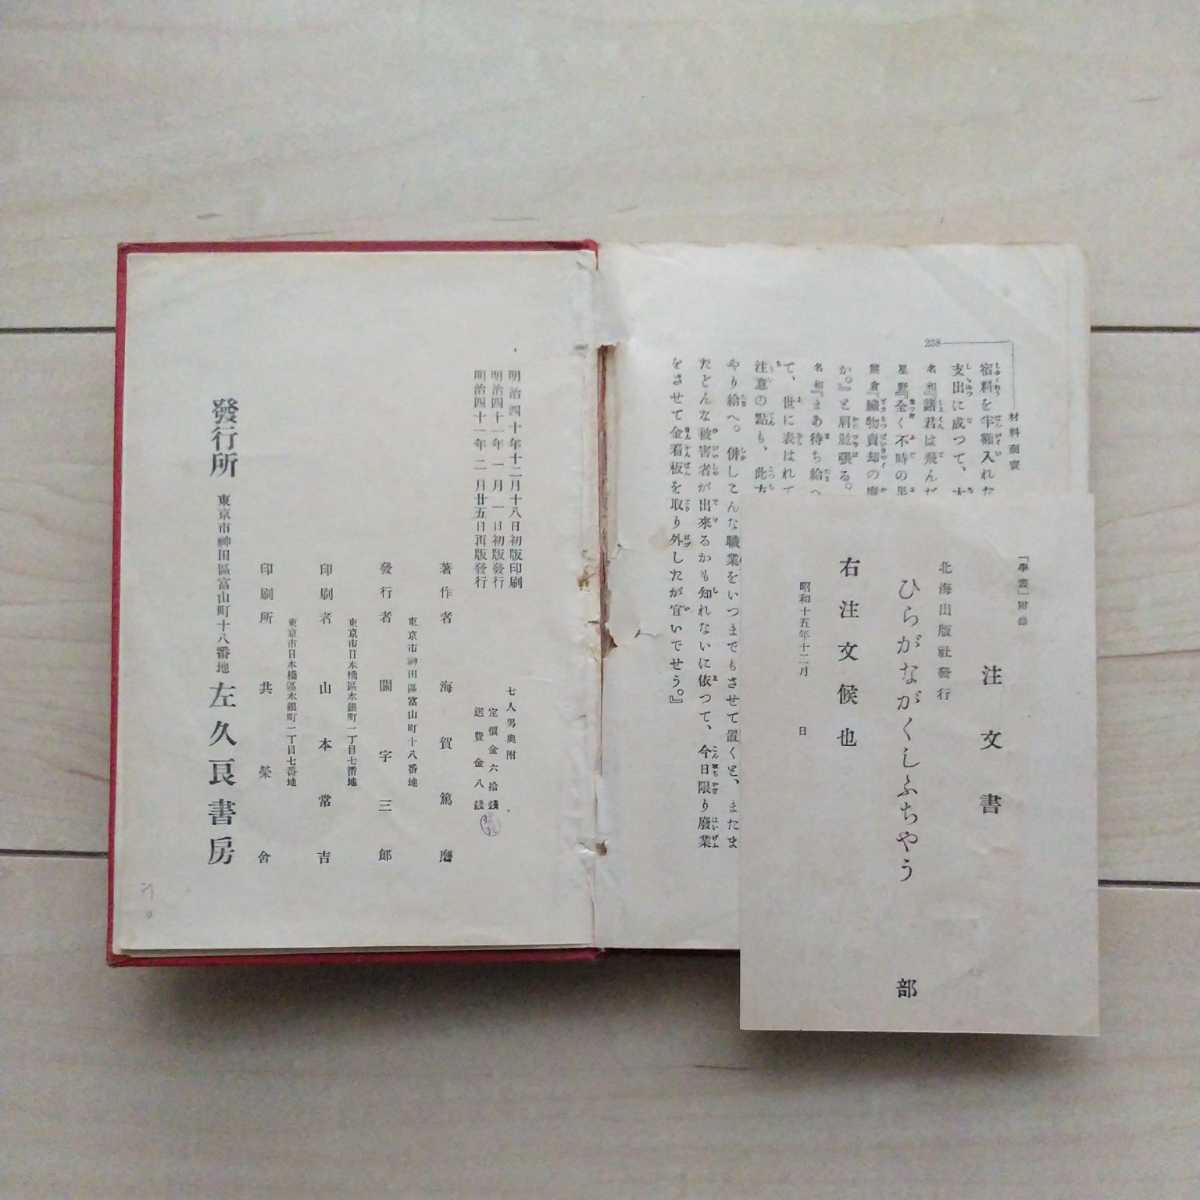 注文書
『學叢』附錄
北海出版社發行
ひらがながくしふちやう
部
右注文候也
昭和十五年十二月
日
238
材料商賣
支出に成つて、
名和『諸君は飛んだ
星野『全く不時の
か。』と肩を張る。
名和『まあ待ち給へ
て、世に表はれて
注意の點も、此方
やり給へ。併しこんな職業をいつまでもさせて置くと、またま
たどんな被害者が出來るかも知れないに依つて、今日限り廢業
をさせて金看板を取り外したが宜いでせう。』
明治四十年十二月十八日初版印刷
明治四十一年一月一日初版發行
明治四十一年二月廿五日再版發行
七人男奧附
定價金六拾錢
送費金八錢
著作者 海賀篤麿
東京市神田區富山町十八番地
發行者 關宇三郎
東京市日本橋區本銀町一丁目七番地
印刷者 山本常吉
東京市日本橋區本銀町一丁目七番地
印刷所 共榮舍
發行所 東京市神田區富山町十八番地 左久良書房